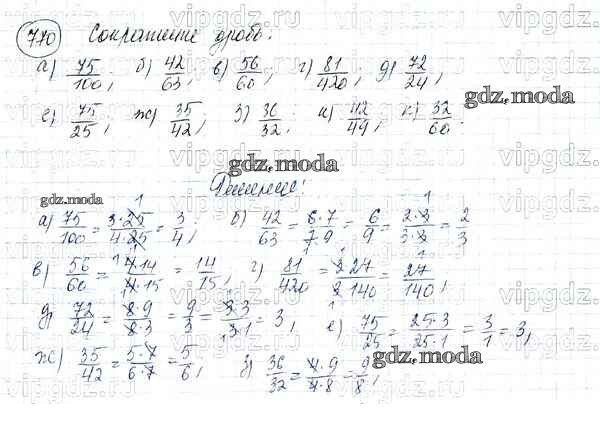 770 Сократите дробь:
а) 75/100, б) 42/63; в) 56/60; г) 81/420; д) 72/24,
е) 75/25; ж) 35/42; з) 36/32; и) 42/49, к) 32/60.
gdz.moda
gdz.moda
Решение:
gdz.moda
а) 75/100 = 3·25/4·25 = 3/4, б) 42/63 = 6·7/7·9 = 6/9 = 2·3/3·3 = 2/3
в) 56/60 = 4·14/4·15 = 14/15, г) 81/420 = 3·27/3·140 = 27/140,
д) 72/24 = 8·9/8·3 = 9/3 = 3·3/3·1 = 3, е) 75/25 = 25·3/25·1 = 3/1 = 3,
ж) 35/42 = 5·7/6·7 = 5/6, з) 36/32 = 4·9/4·8 = 9/8,
gdz.moda
vipgdz.ru